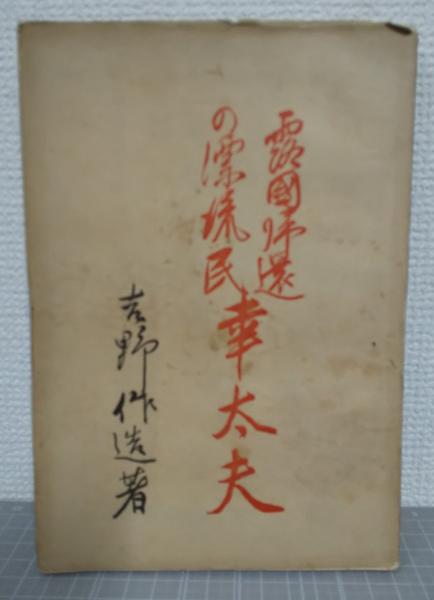 露國帰還
の漂流民幸太夫
吉野作造著